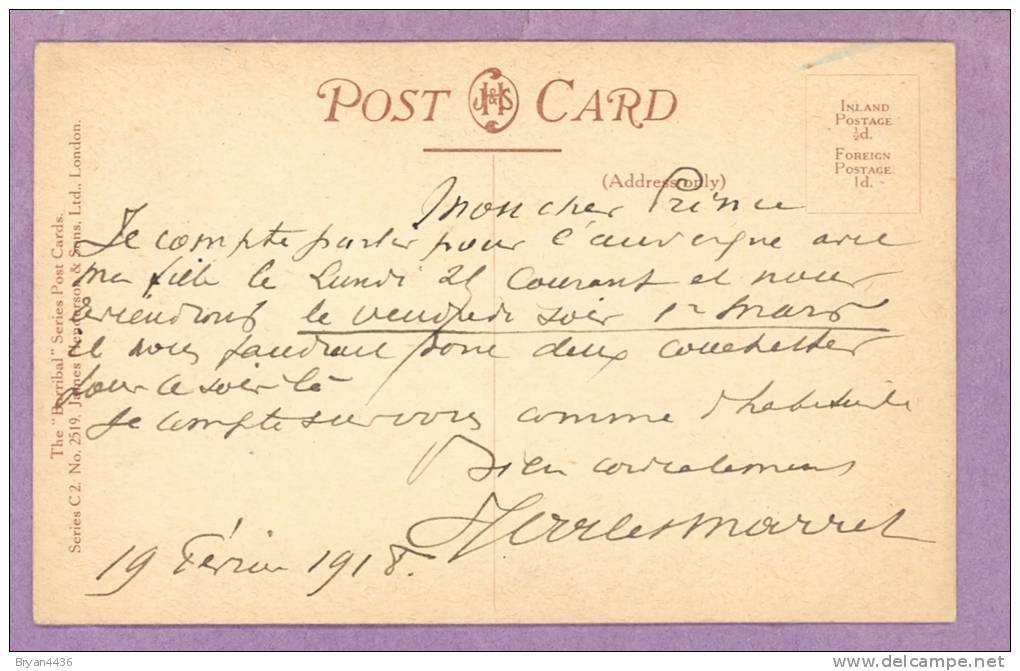 POST J&HS CARD
INLAND
POSTAGE
½d.
FOREIGN
POSTAGE
1d.
(Address only)
The "Barribal" Series Post Cards.
Series C 2. No. 2519. James Henderson & Sons, Ltd., London.
Mon cher Prince
Je compte partir pour l'auvergne avec
ma fille le Lundi 25 courant et nous
reviendrons le vendredi soir 1er mars
il nous faudrait donc deux couchettes
pour ce soir là
Je compte sur vous comme d'habitude
Bien cordialement
19 Février 1918.
Bryan4436
www.delcampe.net